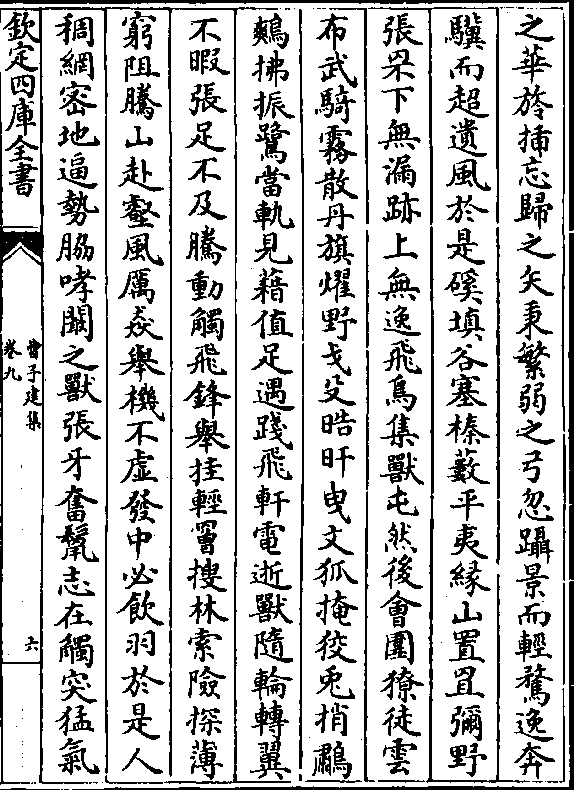 之華旍揷忘歸之矢秉繁弱之弓忽躡景而輕騖逸奔
驥而超遺風於是磎填谷塞榛藪平夷緣山置罝彌野
張罘下無漏跡上無逸飛鳥集獸屯然後會圍獠徒雲
布武騎霧散丹旗燿野戈殳晧旰曳文狐掩狡兎捎鸘
鷞拂振鷺當軌見藉值足遇踐飛軒電逝獸隨輪轉翼
不暇張足不及騰動觸飛鋒舉挂輕罾搜林索險探薄
窮阻騰山赴壑風厲焱舉機不虛發中必飲羽於是人
稠網密地逼勢脇哮闞之獸張牙奮鬛志在觸突猛氣
欽定四庫全書
曹子建集
卷九
六